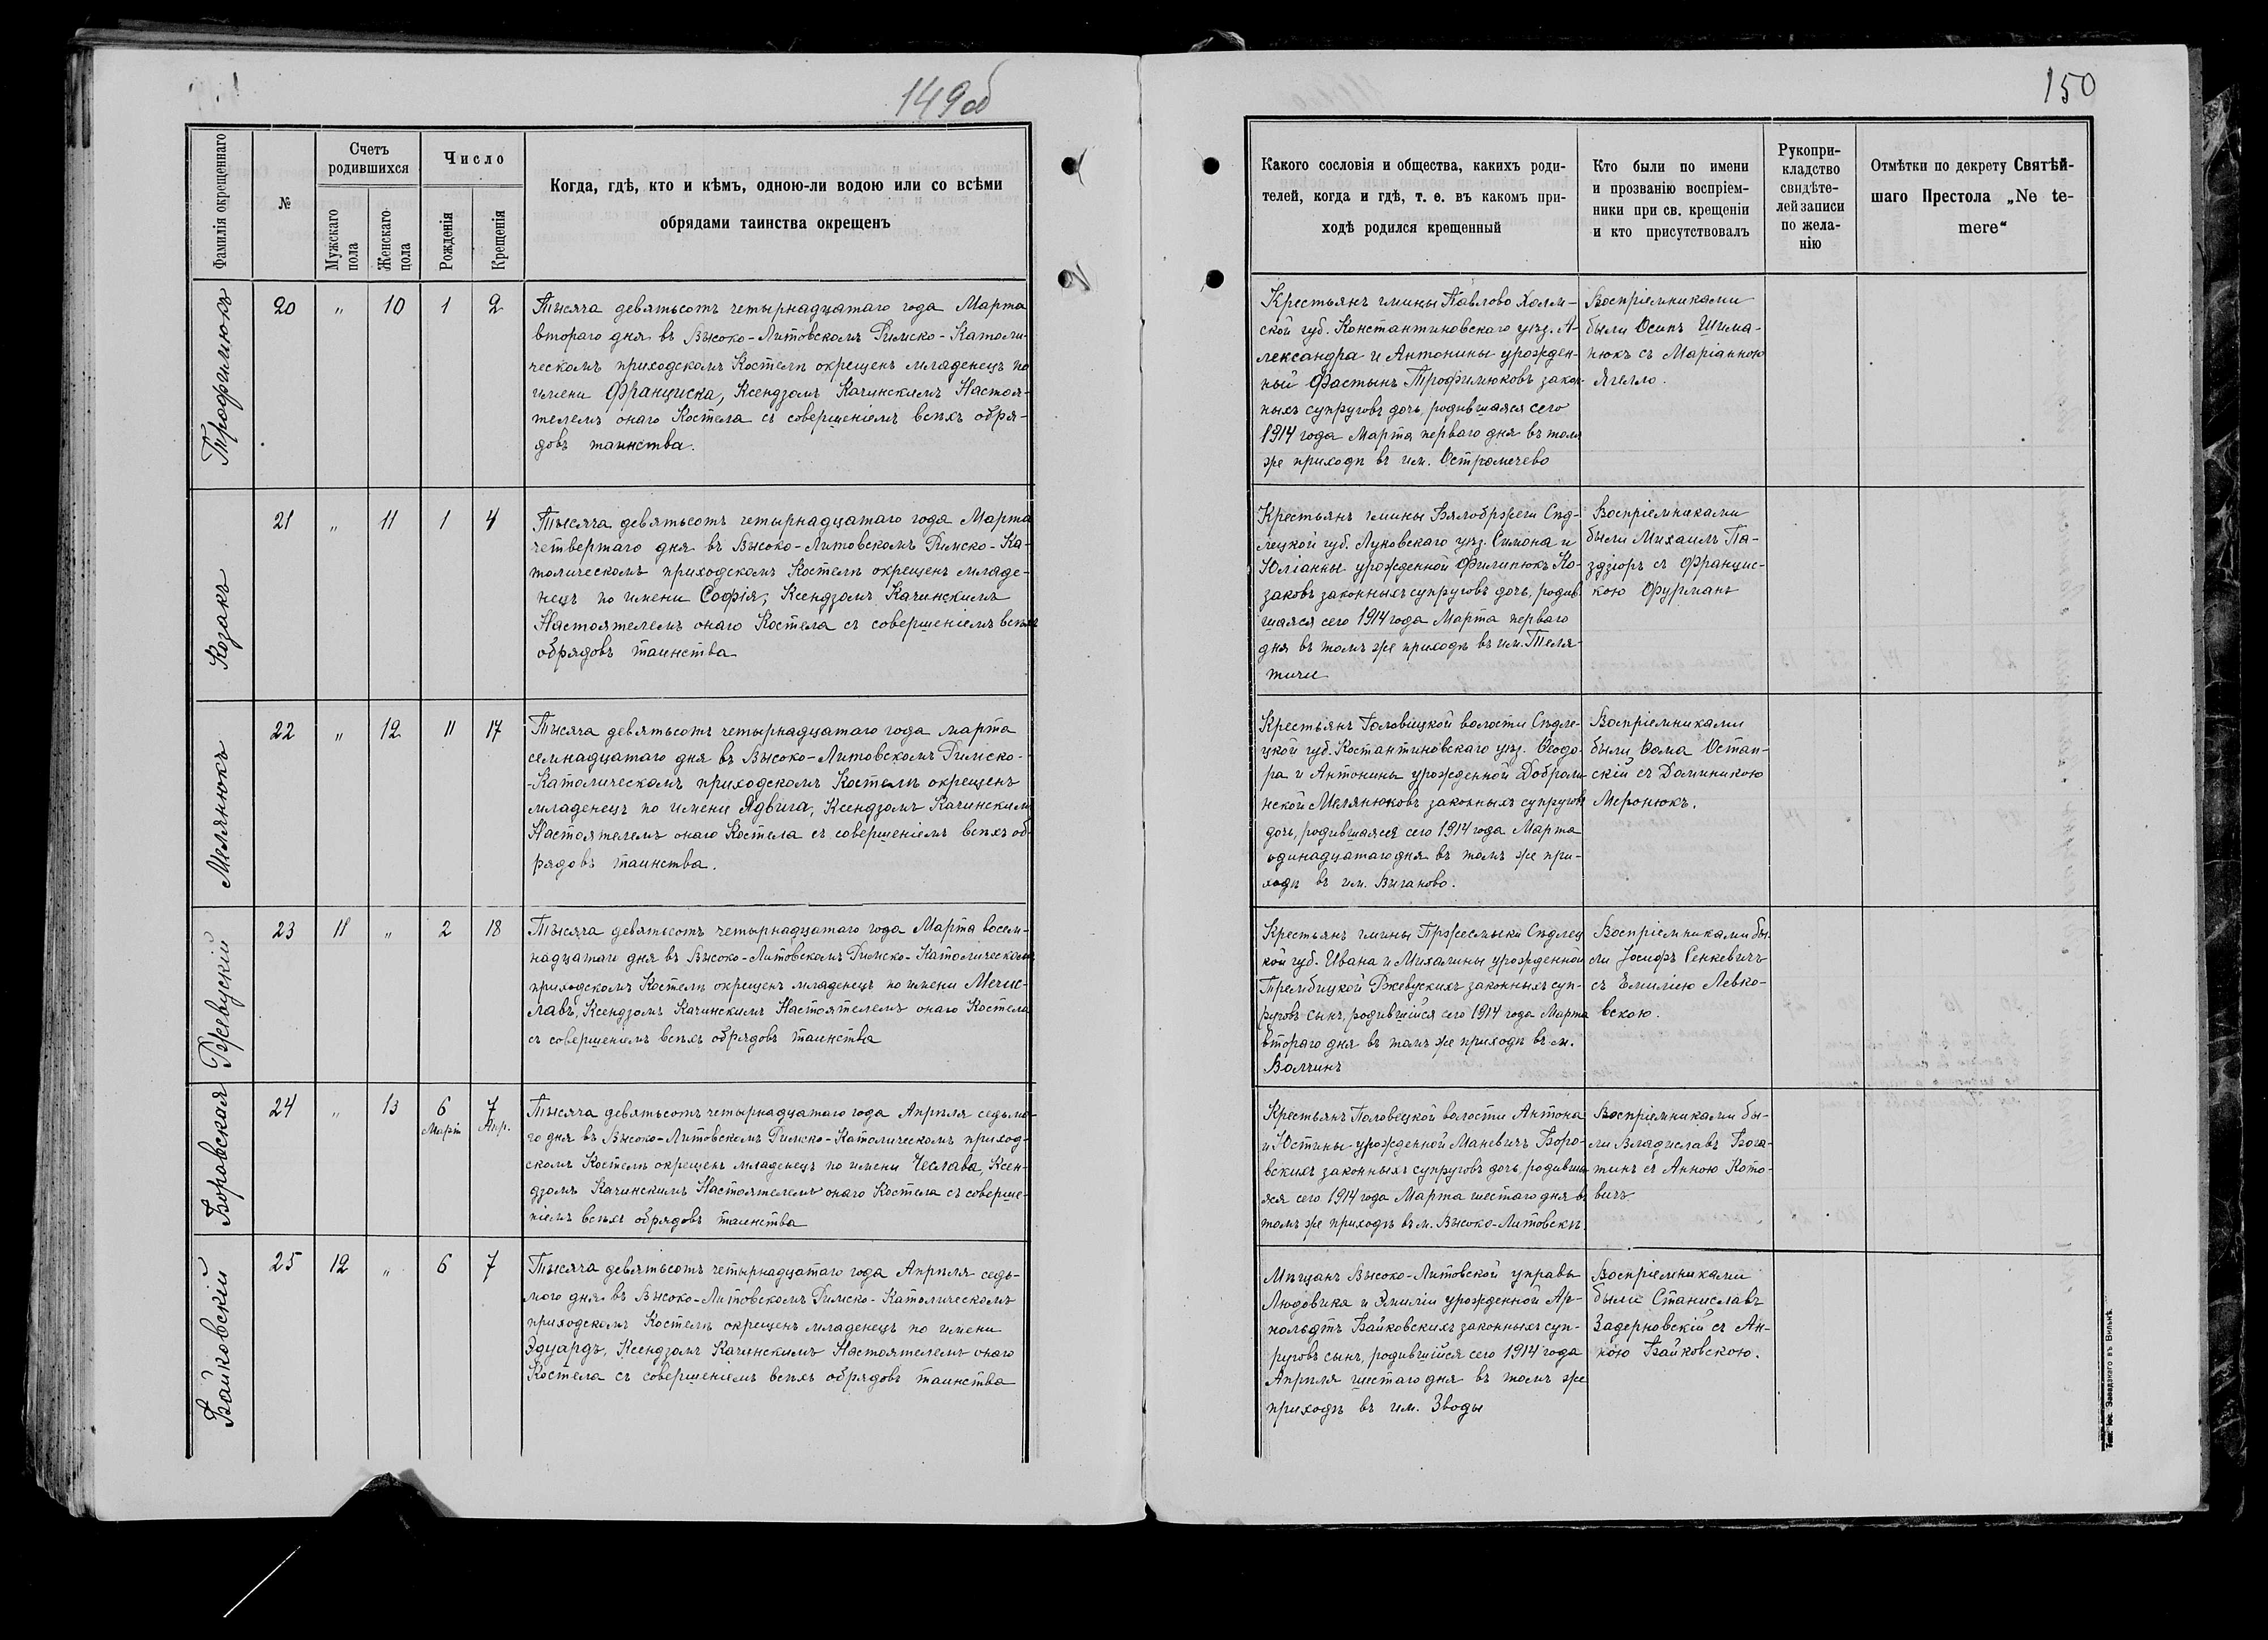 149об
Фамилія окрещеннаго
№
Счетъ
родившихся
Мужскаго
пола
Женскаго
пола
Число
Рожденія
Крещенія
Когда, гдѣ, кто и кѣмъ, одною-ли водою или со всѣми
обрядами таинства окрещенъ
Трофимюкъ
20 „ 10 1 2
Тысяча девятьсотъ четырнадцатаго года Марта
втораго дня въ Высоко-Литовскомъ Римско-Католи-
ческомъ приходскомъ Костелѣ окрещенъ младенецъ по
имени Франциска, Ксендзомъ Качинскимъ Настоя-
телемъ онаго Костела съ совершеніемъ всѣхъ обря-
довъ таинства.
Козакъ
21 „ 11 1 4
Тысяча девятьсотъ четырнадцатаго года Марта
четвертаго дня въ Высоко-Литовскомъ Римско-Ка-
толическомъ приходскомъ Костелѣ окрещенъ младе-
нецъ по имени Софія, Ксендзомъ Качинскимъ
Настоятелемъ онаго Костела съ совершеніемъ всѣхъ
обрядовъ таинства
Мелянюкъ
22 „ 12 11 17
Тысяча девятьсотъ четырнадцатаго года марта
семнадцатаго дня въ Высоко-Литовскомъ Римско-
-Католическомъ приходскомъ Костелѣ окрещенъ
младенецъ по имени Ядвига, Ксендзомъ Качинскимъ
Настоятелемъ онаго Костела съ совершеніемъ всѣхъ об-
рядовъ таинства.
Ржевускій
23 11 „ 2 18
Тысяча девятьсотъ четырнадцатаго года Марта восем-
надцатаго дня въ Высоко-Литовскомъ Римско-Католическомъ
приходскомъ Костелѣ окрещенъ младенецъ по имени Мечис-
лавъ, Ксендзомъ Качинскимъ Настоятелемъ онаго Костела
съ совершеніемъ всѣхъ обрядовъ таинства
Боровская
24 „ 13 6 7
Март Апр.
Тысяча девятьсотъ четырнадцатаго года Апрѣля седьма-
го дня въ Высоко-Литовскомъ Римско-Католическомъ приход-
скомъ Костелѣ окрещенъ младенецъ по имени Чеслава, Ксен-
дзомъ Качинскимъ Настоятелемъ онаго Костела съ соверше-
ніемъ всѣхъ обрядовъ таинства
Байковскій
25 12 „ 6 7
Тысяча девятьсотъ четырнадцатаго года Апрѣля седь-
мого дня въ Высоко-Литовскомъ Римско-Католическомъ
приходскомъ Костелѣ окрещенъ младенецъ по имени
Эдуардъ, Ксендзомъ Качинскимъ Настоятелемъ онаго
Костела съ совершеніемъ всѣхъ обрядовъ таинства
150
Какого сословія и общества, какихъ роди-
телей, когда и гдѣ, т. е. въ какомъ при-
ходѣ родился крещенный
Кто были по имени
и прозванію воспріем-
ники при св. крещеніи
и кто присутствовалъ
Рукопри-
кладство
свидѣте-
лей записи
по жела-
нію
Отмѣтки по декрету Святѣй-
шаго Престола „Ne te-
mere“
Крестьянъ гмины Павлово Холм-
ской губ. Константиновскаго уѣз. А-
лександра и Антонины урожден-
ный Фастынъ Трофимюковъ закон-
ныхъ супруговъ дочь, родившаяся сего
1914 года Марта перваго дня въ томъ
же приходѣ въ им. Остромечево
Воспріемниками
были Осипъ Шима-
нюкъ съ Маріанною
Ягелло.
Крестьянъ гмины Бялобржеги Сѣд-
лецкой губ. Луковскаго уѣз. Симона и
Юліанны урожденной Филипюкъ Ко-
заковъ законныхъ супруговъ дочь, родив-
шаяся сего 1914 года Марта перваго
дня въ томъ же приходѣ въ им. Теля-
тичи
Воспріемниками
были Михаилъ Па-
здзіоръ съ Францис-
кою Фурманъ
Крестьянъ Головицкой волости Сѣдле-
цкой губ. Костантиновскаго уѣз. Ѳеодо-
ра и Антонины урожденной Добролин-
нской Мелянюковъ законныхъ супруговъ
дочь, родившаяся сего 1914 года Марта
одинадцатаго дня въ томъ же при-
ходѣ въ им. Выганово.
Воспріемниками
были Ѳома Остап-
скій съ Доминикою
Меронюкъ.
Крестьянъ гмины Пржесмыки Сѣдлец
кой губ. Ивана и Михалины урожденной
Трембицкой Ржевускихъ законныхъ суп-
руговъ сынъ, родившійся сего 1914 года Марта
втораго дня въ томъ же приходѣ въ м.
Волчинъ
Воспріемниками бы-
ли Іосифъ Сенкевичъ
съ Емиліею Левко-
вскою.
Крестьянъ Половецкой волости Антона
и Юстины урожденной Маневичъ Боро-
вскихъ законныхъ супруговъ дочь, родивша-
яся сего 1914 года Марта шестаго дня въ
томъ же приходѣ въ м. Высоко-Литовскѣ.
Воспріемниками бы-
ли Владиславъ Бога-
тинъ съ Анною Кото-
вичъ
Мѣщанъ Высоко-Литовской управы
Людовика и Эмиліи урожденной Ар-
нольдтъ Байковскихъ законныхъ суп-
руговъ сынъ, родившійся сего 1914 года
Апрѣля шестаго дня въ томъ же
приходѣ въ им. Зводы
Воспріемниками
были Станиславъ
Задерновскій съ Ан-
ною Байковскою.
Тип. Іос. Завадзкаго въ Вильнѣ.